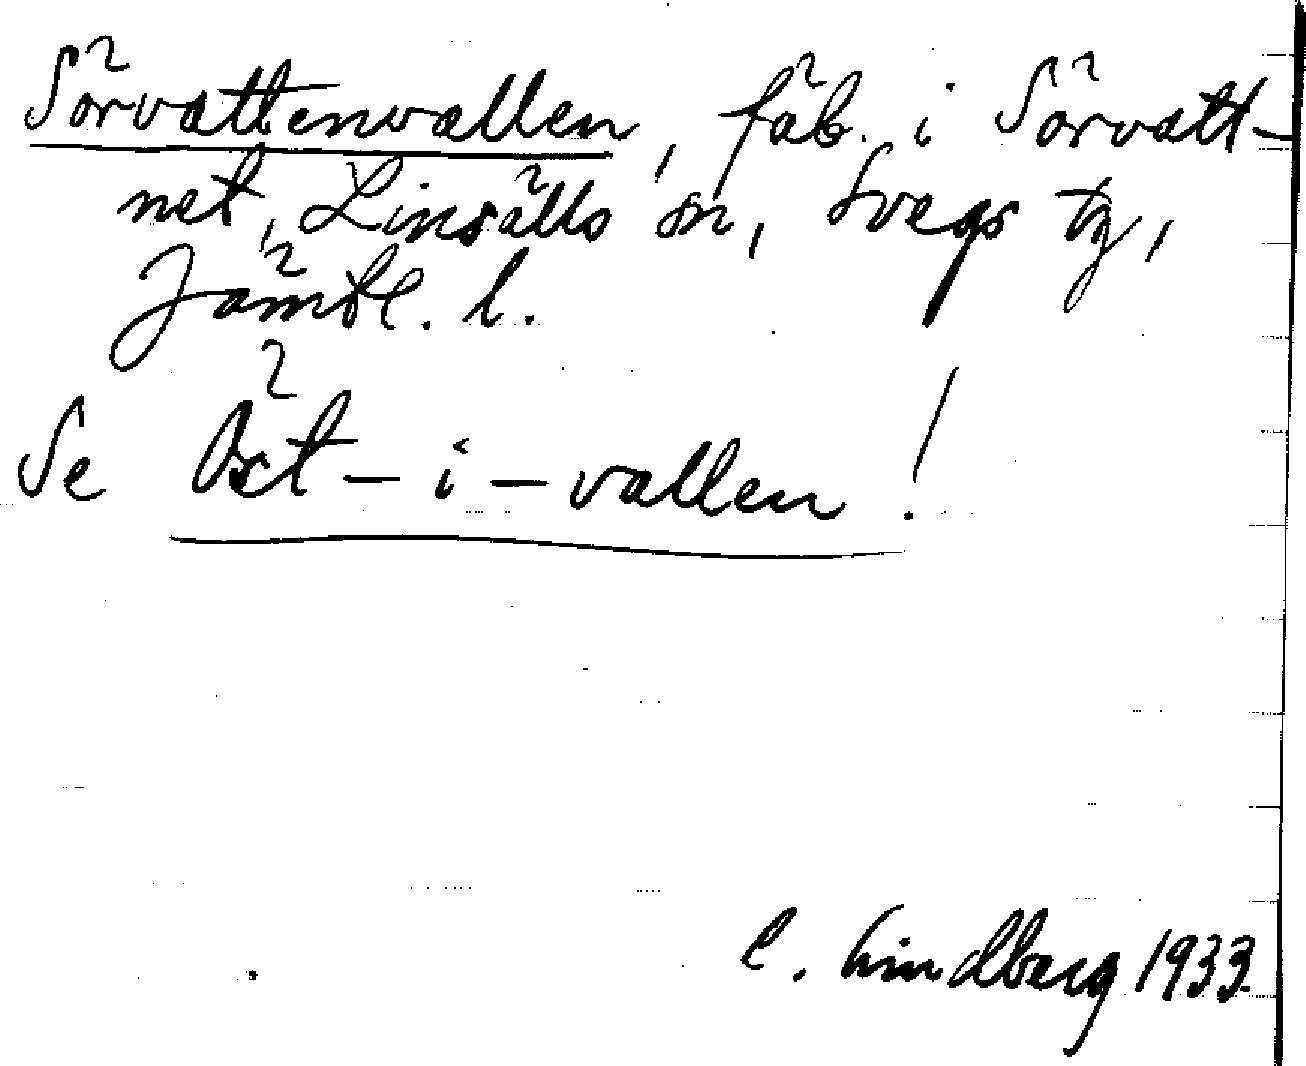 Sörvattenvallen, fäb. i Sörvatt-
net, Linsälls sn, Svegs tg,
Jämtl. l.
Se Öst-i-vallen!
C. Lindberg 1933